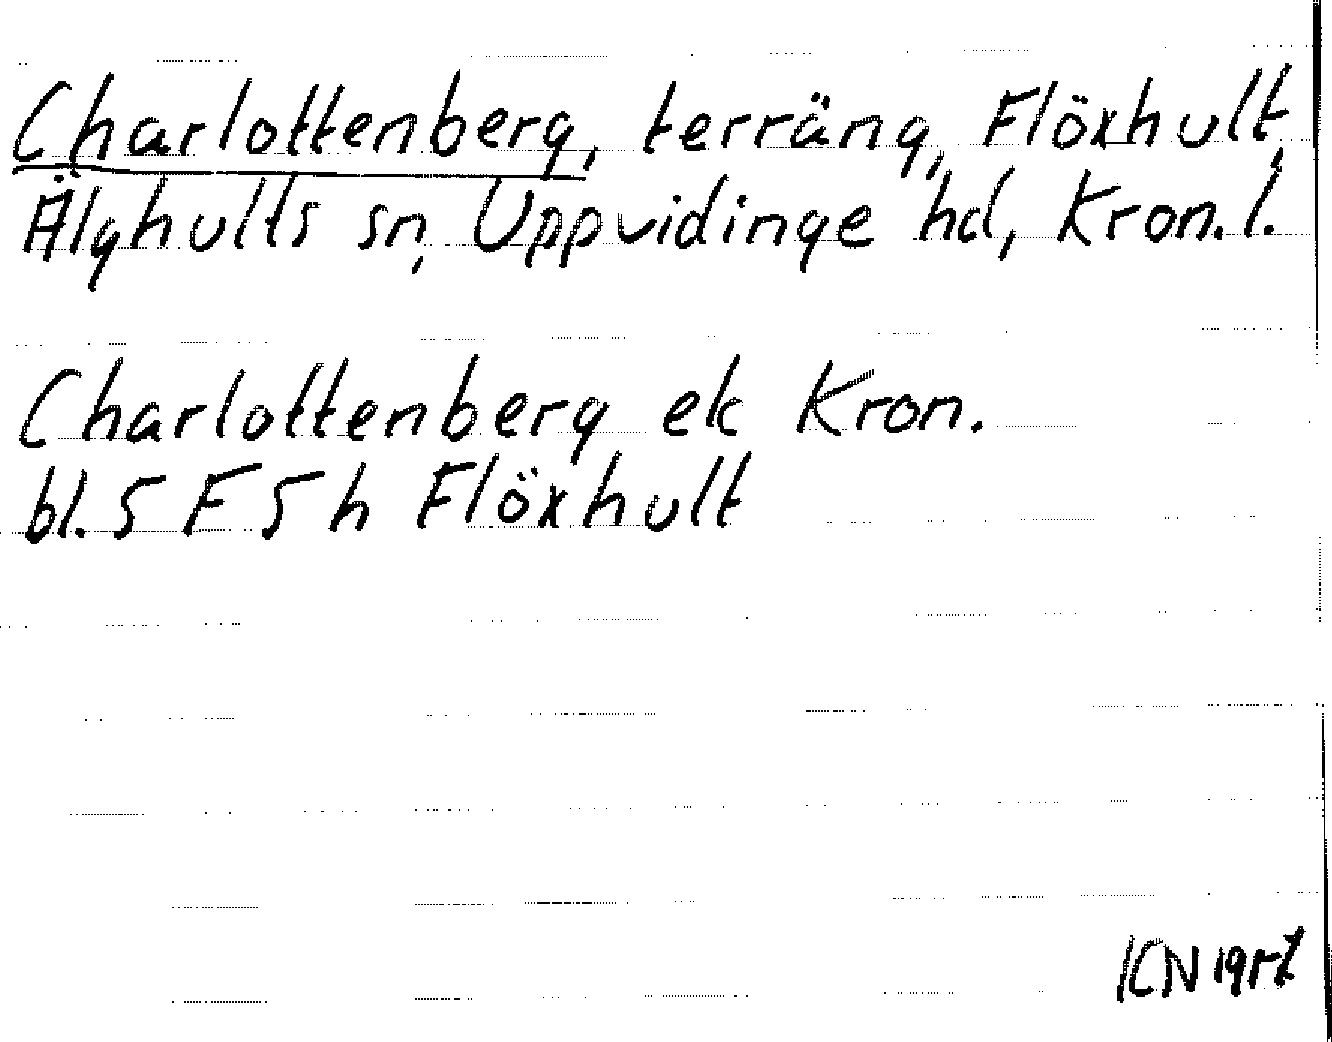 Charlottenberg, terräng, Flöxhult,
Älghults sn, Uppvidinge hd, Kron.l.
Charlottenberg ek Kron.
bl. 5 F 5 h Flöxhult
ICN 1957